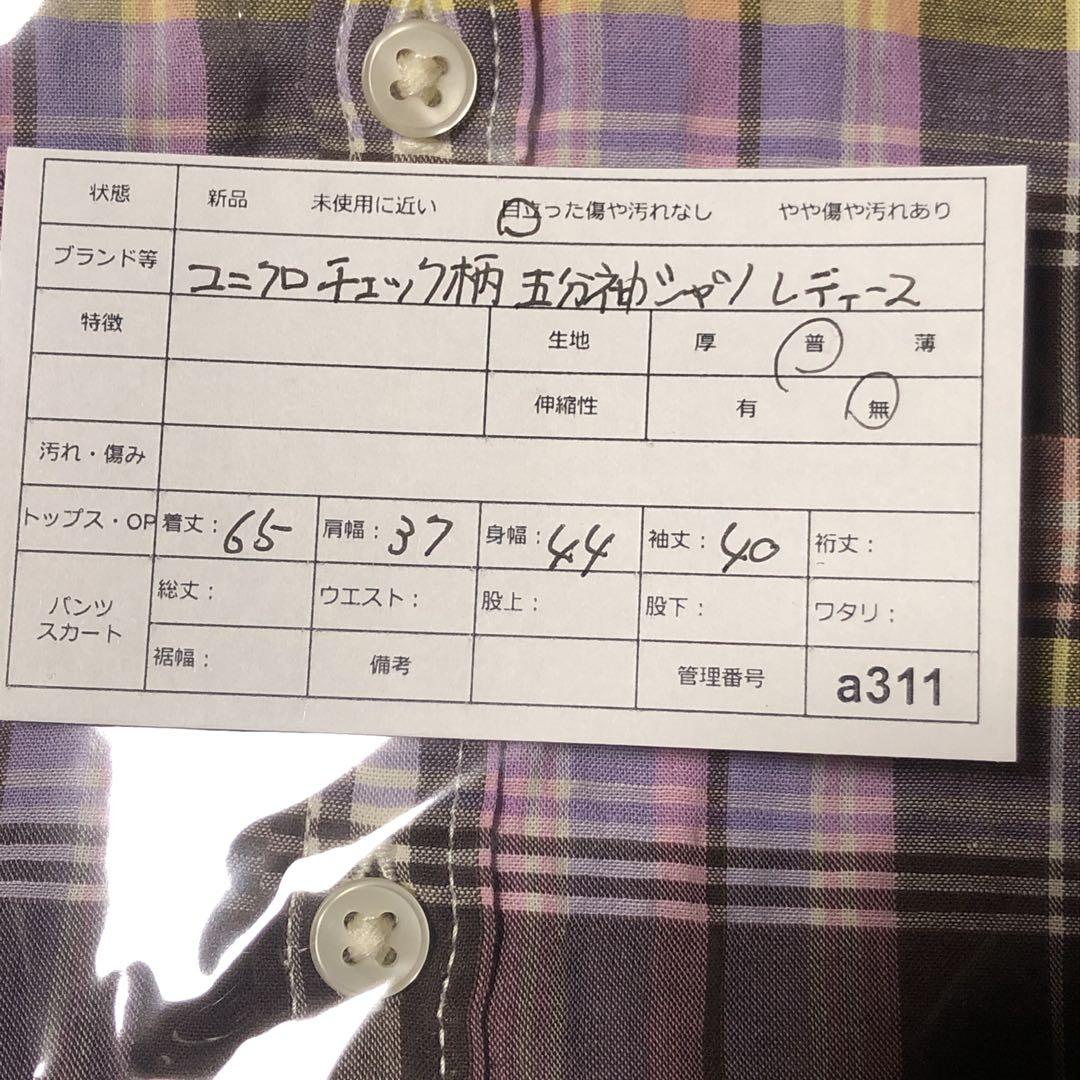 状態 新品 未使用に近い 目立った傷や汚れなし やや傷や汚れあり
ブランド等 ユニクロ チェック柄 五分袖シャツ レディース
特徴 生地 厚 普 薄
伸縮性 有 無
汚れ・傷み
トップス・OP 着丈： 65 肩幅： 37 身幅： 44 袖丈： 40 裄丈：
パンツ スカート 総丈： ウエスト： 股上： 股下： ワタリ：
裾幅： 備考 管理番号 a311